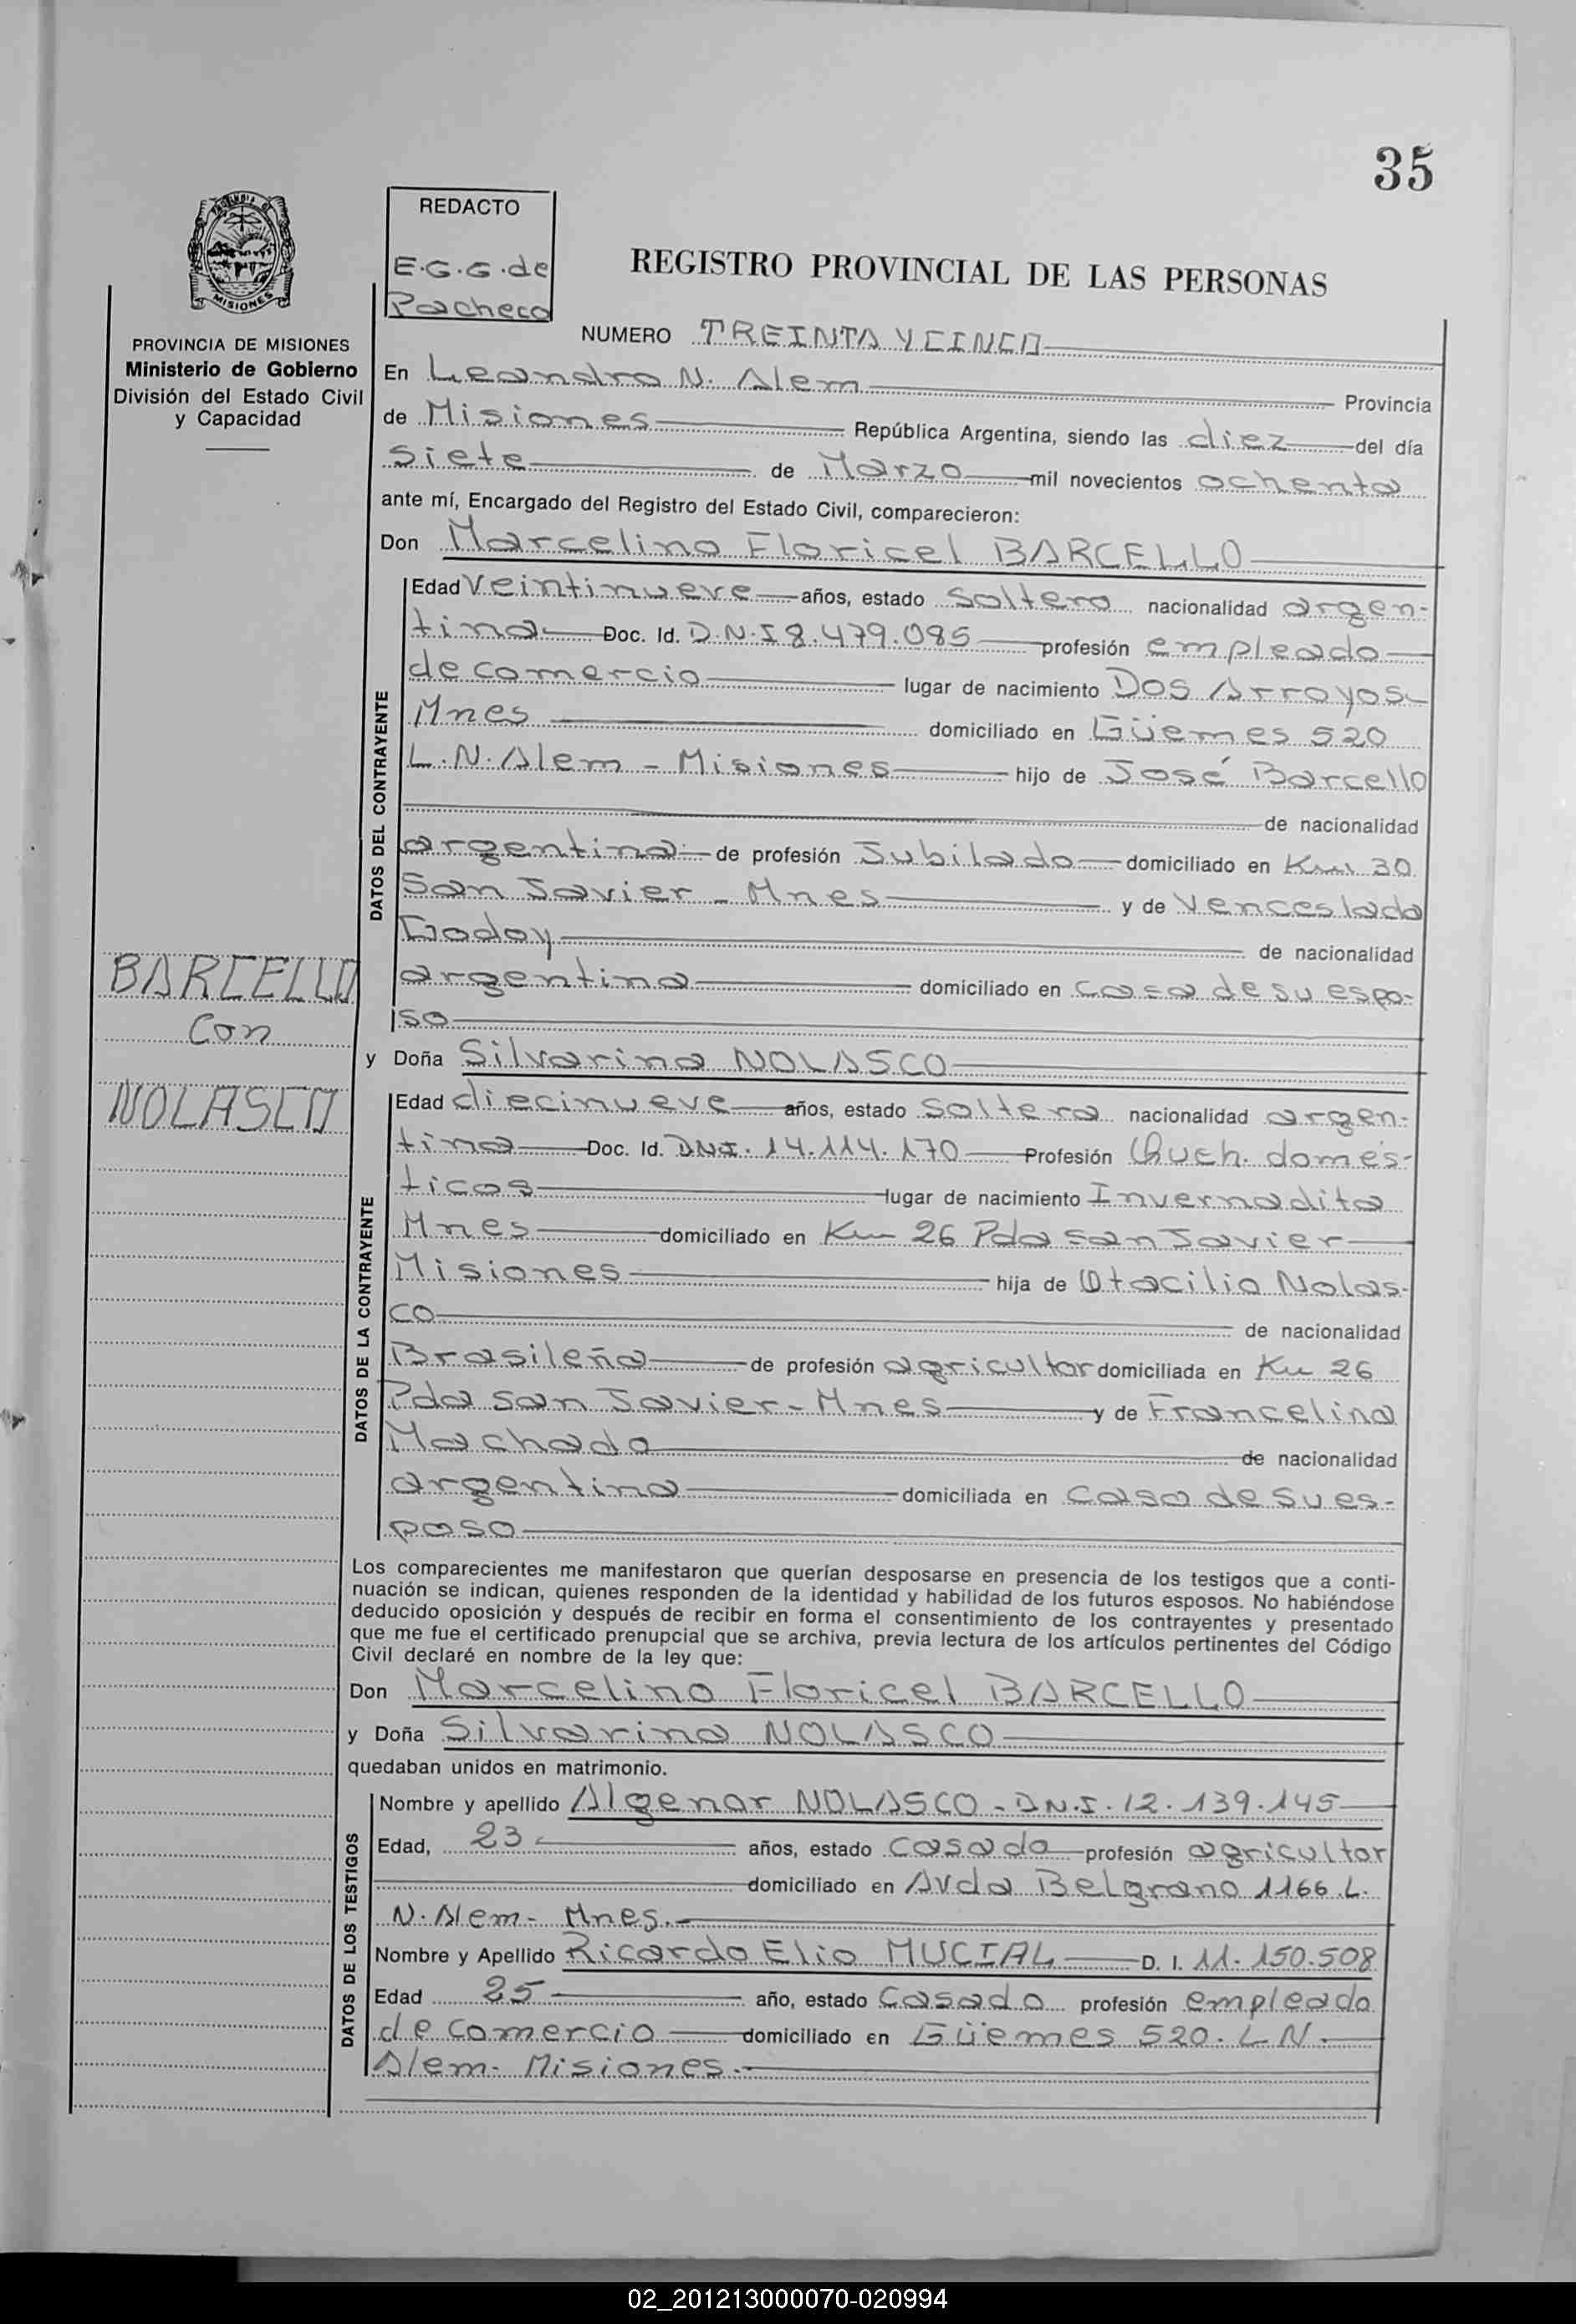 35
REDACTO
E.G.G. de
Pacheco
MISIONES
PROVINCIA DE MISIONES
Ministerio de Gobierno
División del Estado Civil
y Capacidad
REGISTRO PROVINCIAL DE LAS PERSONAS
NUMERO TREINTA Y CINCO
En Leandro N. Alem Provincia
de Misiones República Argentina, siendo las diez del día
siete de Marzo mil novecientos ochenta
ante mí, Encargado del Registro del Estado Civil, comparecieron:
Don Marcelino Floricel BARCELLO
DATOS DEL CONTRAYENTE
Edad Veintinueve años, estado soltero nacionalidad argen-
tina Doc. Id. D.N.I 8.479.085 profesión empleado
de comercio lugar de nacimiento Dos Arroyos-
Mnes domiciliado en Güemes 520
L.N. Alem - Misiones hijo de José Barcello
de nacionalidad
argentina de profesión Jubilado domiciliado en Km 30
San Javier - Mnes y de Venceslada
Godoy de nacionalidad
argentina domiciliado en casa de su espo-
so
BARCELLO
Con
NOLASCO
y Doña Silvarina NOLASCO
DATOS DE LA CONTRAYENTE
Edad diecinueve años, estado soltera nacionalidad argen-
tina Doc. Id. DNI. 14.114.170 Profesión Queh. domés-
ticos lugar de nacimiento Invernadita
Mnes domiciliado en Km 26 Pda San Javier
Misiones hija de Otacilio Nolas-
co de nacionalidad
Brasileña de profesión agricultor domiciliada en Km 26
Pda San Javier - Mnes y de Francelina
Machado de nacionalidad
argentina domiciliada en casa de su es-
poso
Los comparecientes me manifestaron que querían desposarse en presencia de los testigos que a conti-
nuación se indican, quienes responden de la identidad y habilidad de los futuros esposos. No habiéndose
deducido oposición y después de recibir en forma el consentimiento de los contrayentes y presentado
que me fue el certificado prenupcial que se archiva, previa lectura de los artículos pertinentes del Código
Civil declaré en nombre de la ley que:
Don Marcelino Floricel BARCELLO
y Doña Silvarina NOLASCO
quedaban unidos en matrimonio.
DATOS DE LOS TESTIGOS
Nombre y apellido Algenor NOLASCO - DN.I. 12.139.145
Edad, 23 años, estado casado profesión agricultor
domiciliado en Avda Belgrano 1166 L.
N. Alem - Mnes.
Nombre y Apellido Ricardo Elio MUCIAL D. I. 11.150.508
Edad 25 año, estado casado profesión empleado
de comercio domiciliado en Güemes 520. L N.
Alem - Misiones.
02_201213000070-020994